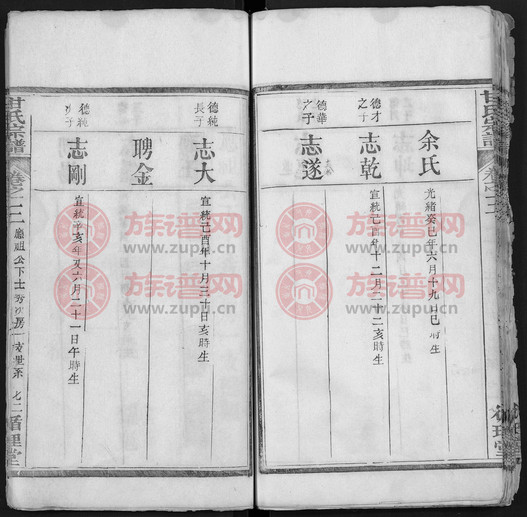 余氏
光緒癸巳年六月十九日巳時生
德才之子
志乾
宣統己酉年十二月二十二亥時生
德華之子
志遂
德純長子
志大
宣統己酉年十月三十日亥時生
聘金
德純次子
志剛
宣統辛亥年又六月二十一日午時生
甘氏宗譜
卷之二
廳祖公下士秀沙房一支世系
七二
循理堂
族谱网
www.zupu.cn
族谱网
www.zupu.cn
族谱网
www.zupu.cn
族谱网
www.zupu.cn